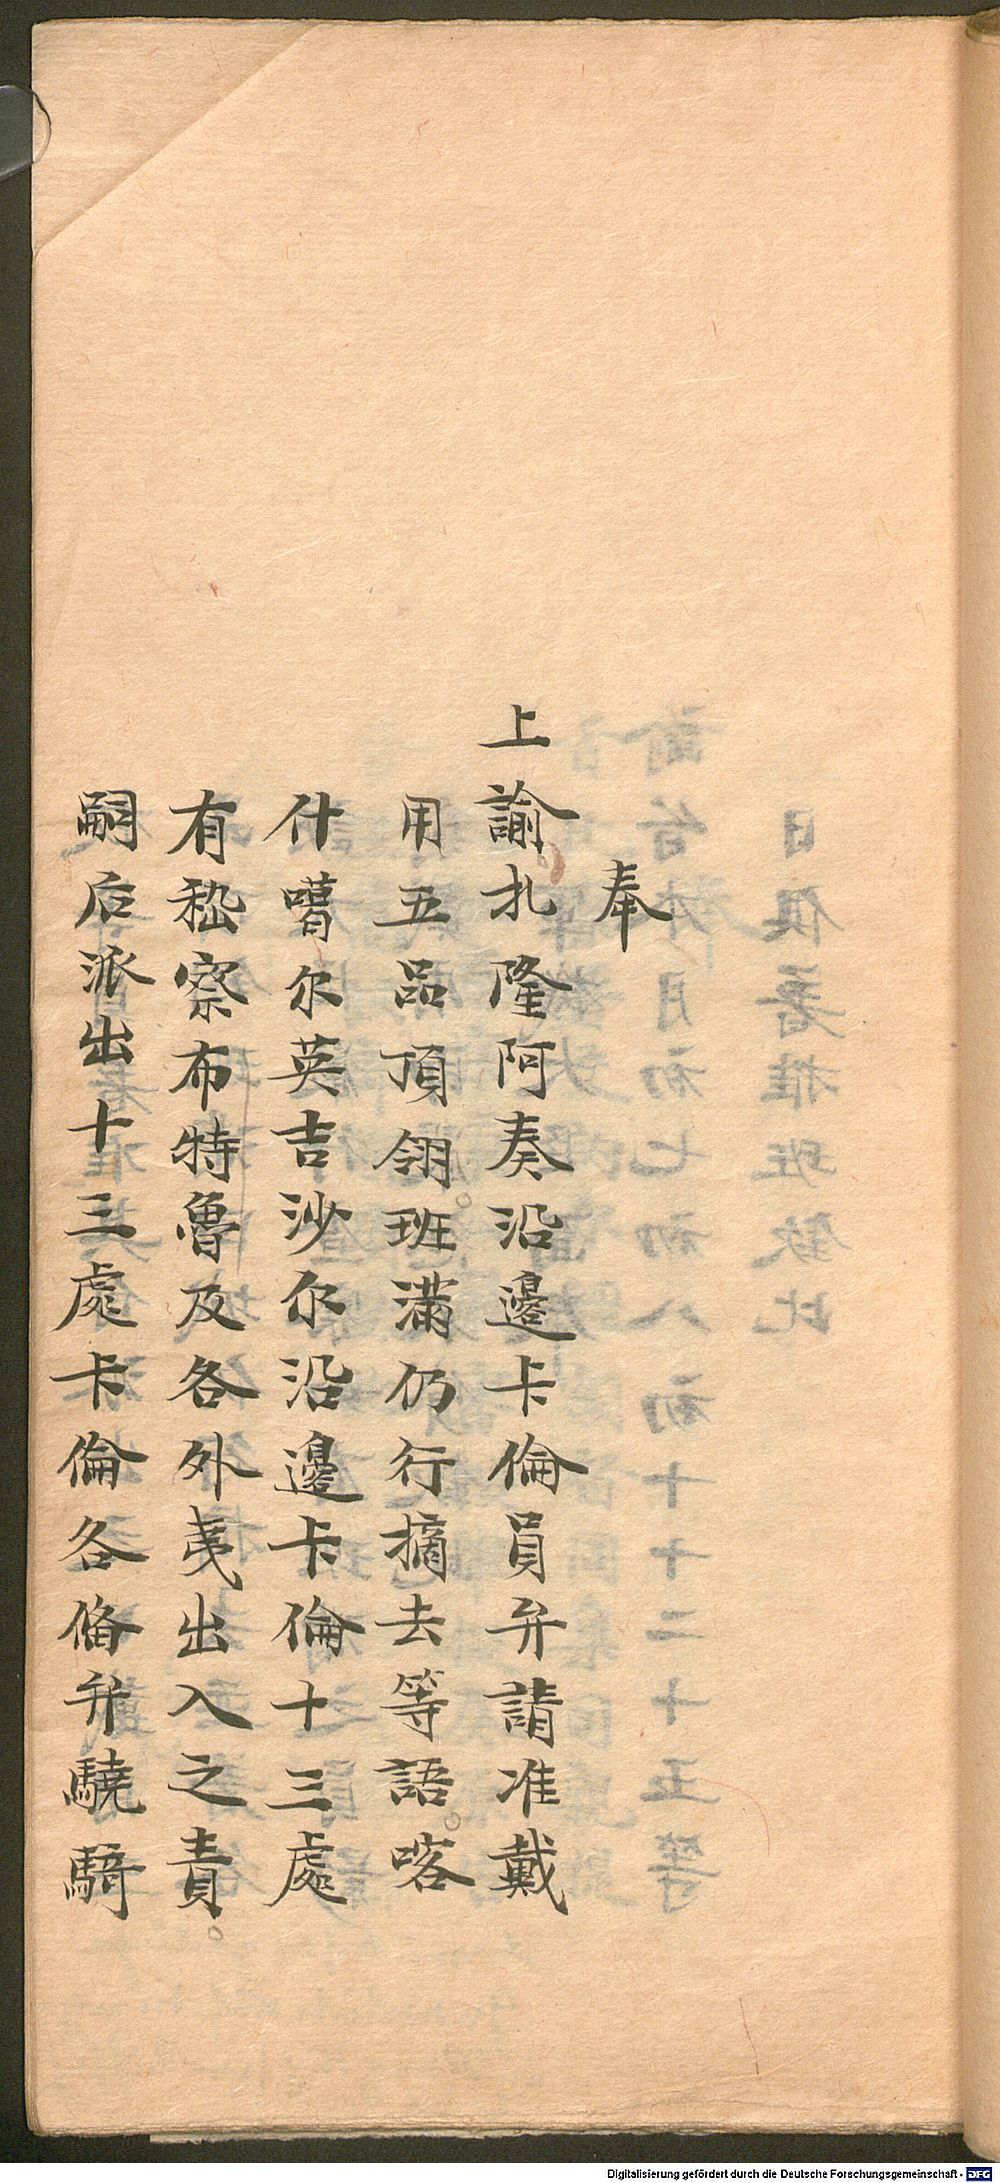 奉
上諭扎隆阿奏沿邊卡倫員弁請准戴
用五品頂翎班滿仍行摘去等語喀
什噶尔英吉沙尔沿邊卡倫十三處
有嵇察布特魯及各外夷出入之責
嗣后派出十三處卡倫各俻弁驍騎
Digitalisierung gefördert durch die Deutsche Forschungsgemeinschaft - DFG